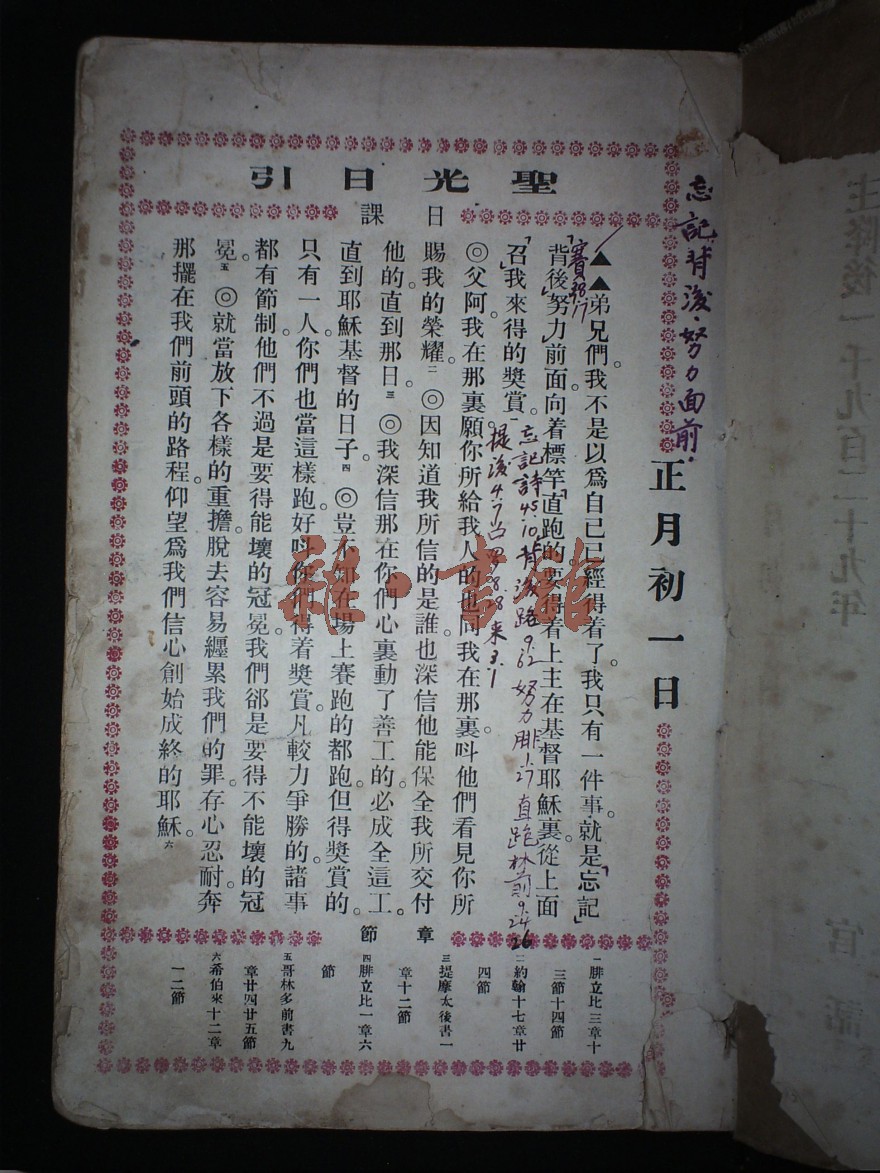 聖光日引
日課
正月初一日
忘記背後·努力面前·
▲▲弟兄們。我不是以爲自己已經得着了。我只有一件事。就是「忘記
背後」努力前面向着標竿「直跑的要得着上主在基督耶穌裏。從上面
「召」我來得的獎賞。一
◎父阿。我在那裏願你所給我人的也同我在那裏呌他們看見你所
賜我的榮耀。二◎因知道我所信的是誰也深信他能保全我所交付
他的直到那日。三◎我深信那在你們心裏動了善工的必成全這工。
直到耶穌基督的日子。四◎豈不知在場上賽跑的都跑。但得獎賞的。
只有一人。你們也當這樣跑。好呌你們得着獎賞。凡較力爭勝的。諸事
都有節制。他們不過是要得能壞的冠冕。我們卻是要得不能壞的冠
冕。五◎就當放下各樣的重擔。脫去容易纏累我們的罪。存心忍耐。奔
那擺在我們前頭的路程。仰望爲我們信心創始成終的耶穌。六
賽38.17
忘記詩45.10背後路9.62努力腓1.27直跑林前9.24 26
提後4.7 8.8來3.1
章節
一腓立比三章十
三節十四節
二約翰十七章廿
四節
三提摩太後書一
章十二節
四腓立比一章六
節
五哥林多前書九
章廿四廿五節
六希伯來十二章
一二節
主降後一千九百二十九年
官話
雜·書館